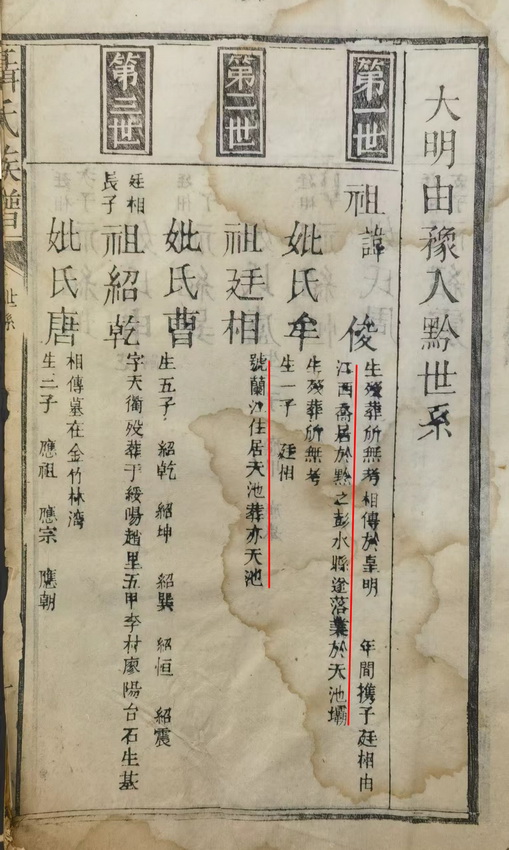 大明由豫入黔世系
第一世
祖諱 俊
生歿葬所無考相傳於皇明 年間携子廷相由
江西喬居於黔之彭水縣逢落業於天池壩
妣氏牟
生歿葬所無考
生一子 廷相
第二世
祖廷相
號蘭江住居天池葬亦天池
妣氏曹
生五子 紹乾 紹坤 紹巽 紹恒 紹震
第三世
廷相
長子
祖紹乾
字天衢歿葬于綏陽趙里五甲李村廖陽台石生基
妣氏唐
相傳墓在金竹林湾
生三子 應祖 應宗 應朝
氏族譜
世系